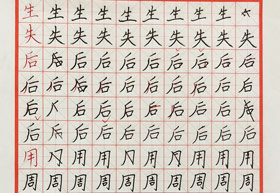 生生生生生生生生生
失失失失失失失失失失
后后后后后后后后后
后后后后后后后后后
后后后后后后后后
后后后后后后后后后
用用用用用用用
周周周周周周周周周周